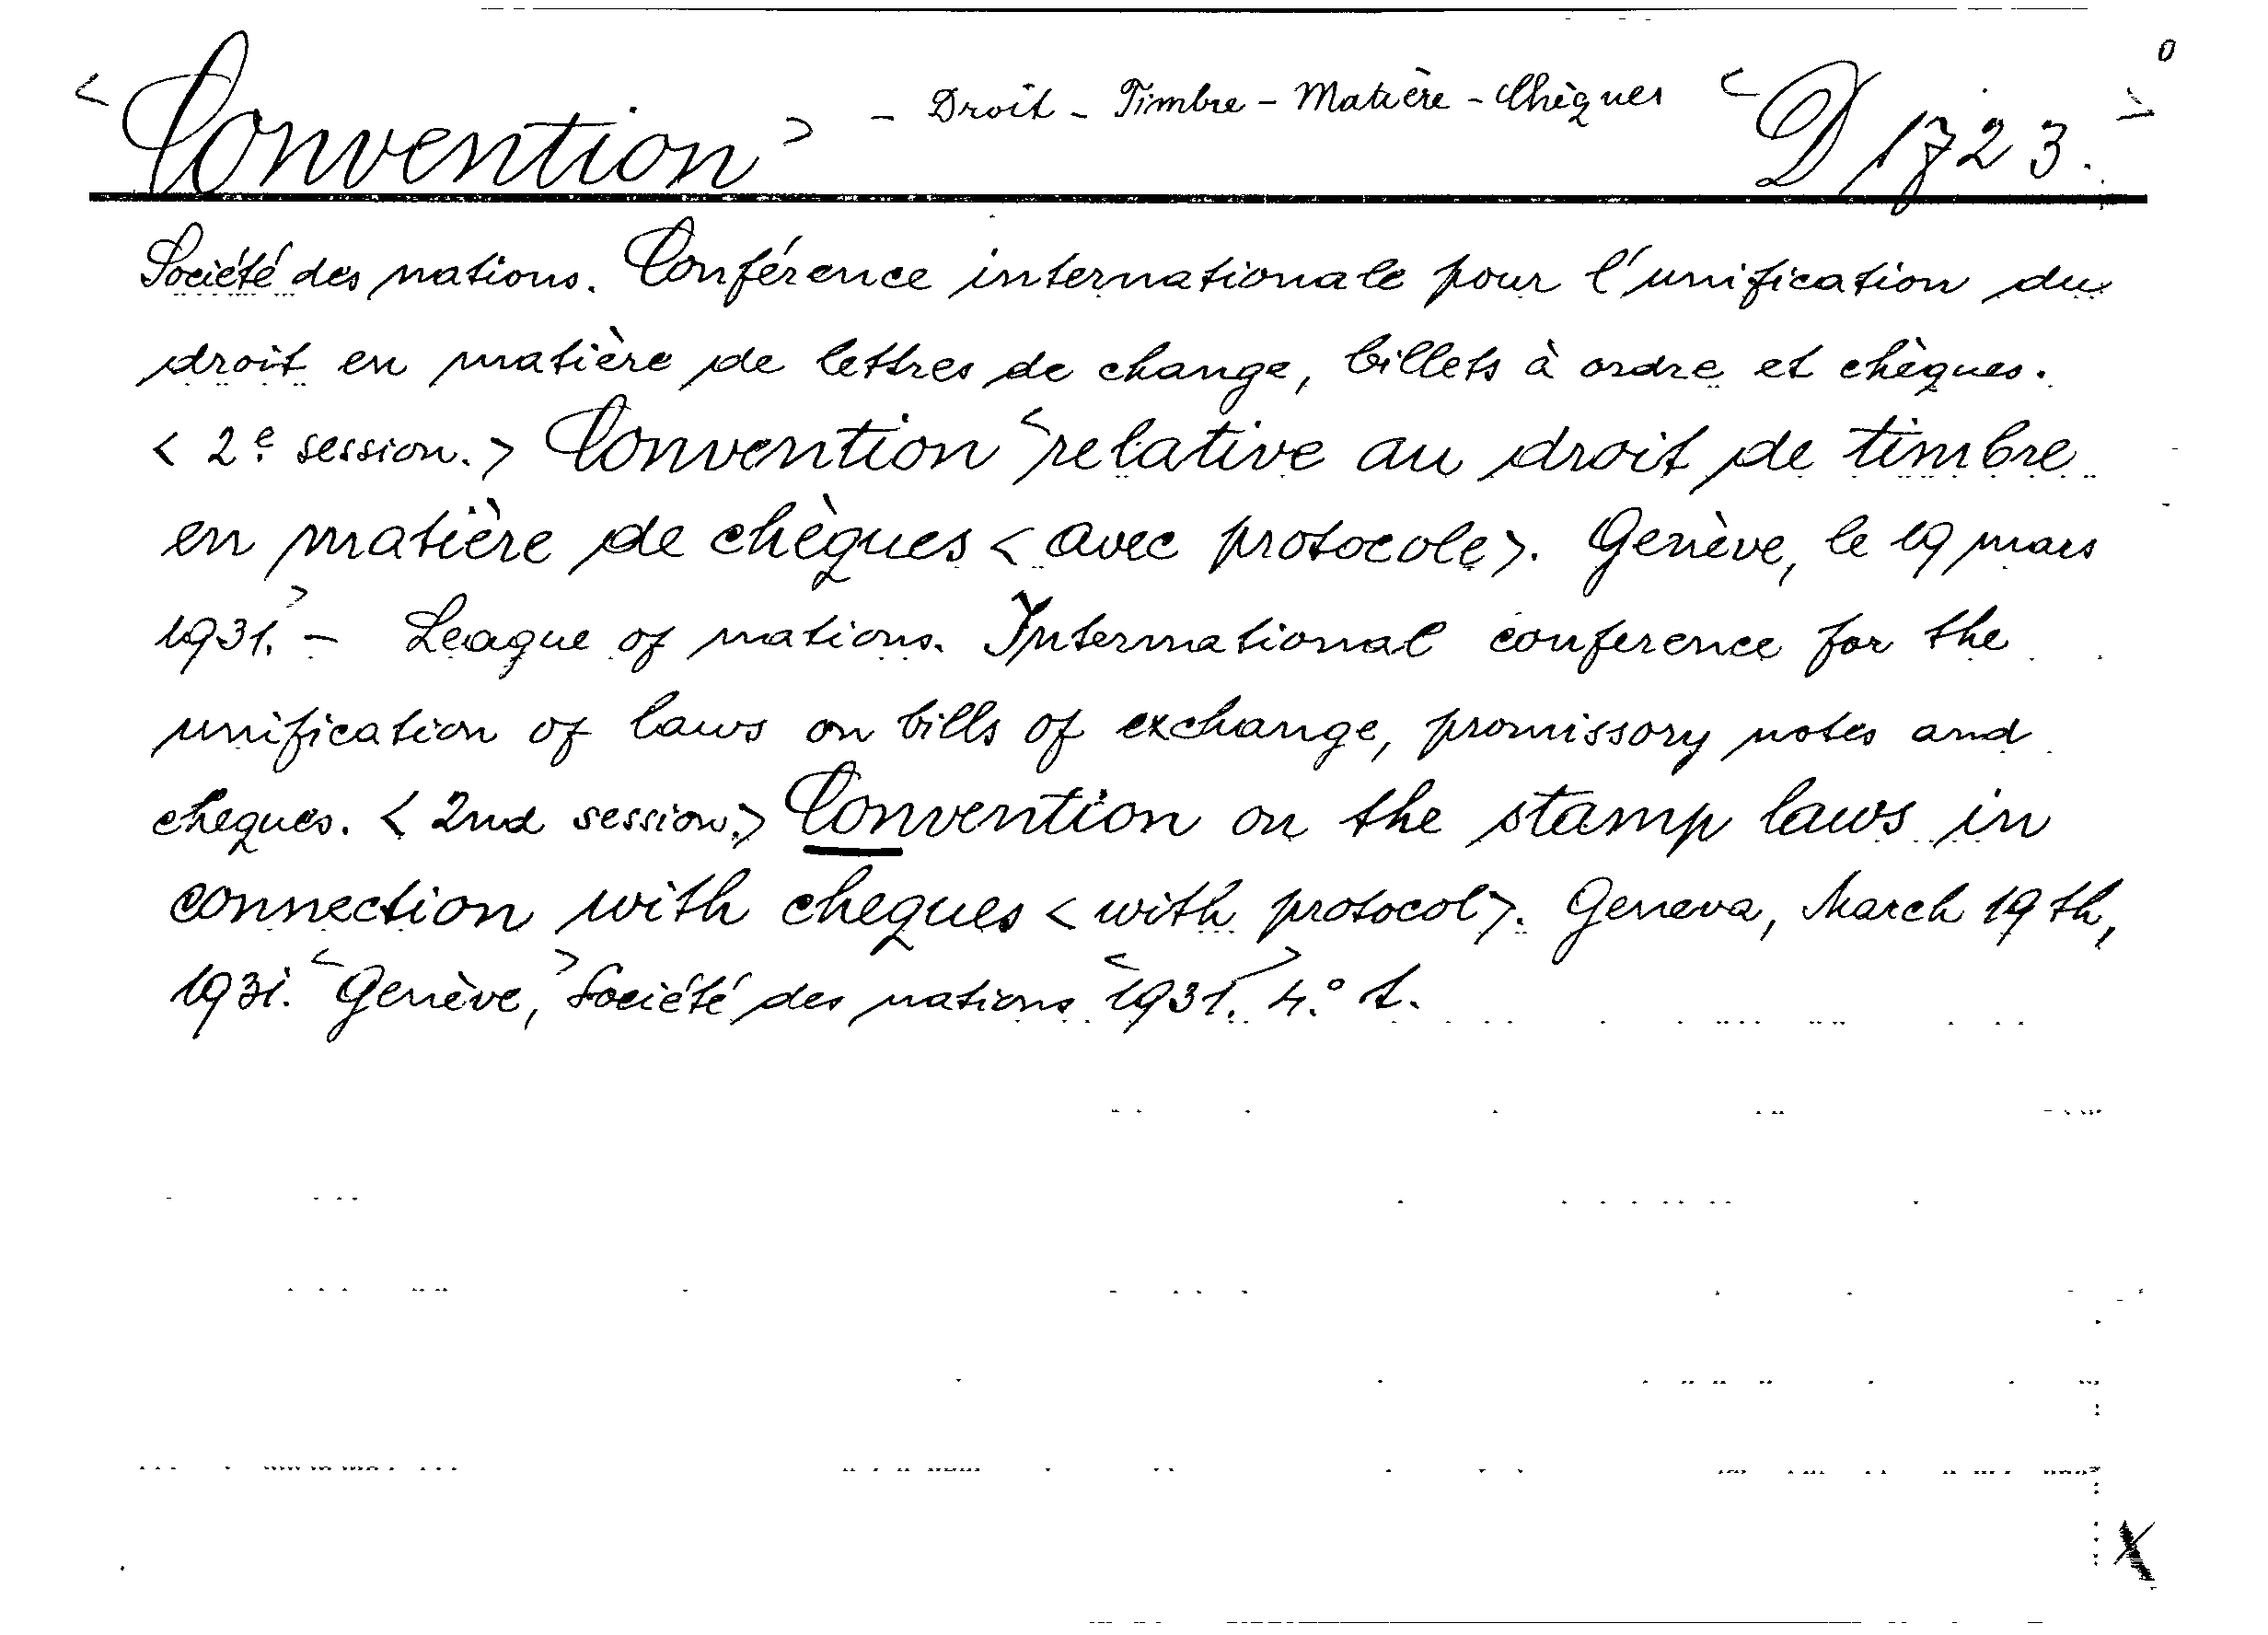 <Convention> - Droit - Timbre - Matière - Chèques <D 1723.>
Société des nations. Conférence internationale pour l'unification du
droit en matière de lettres de change, billets à ordre et chèques.
< 2e session.> Convention <relative au droit de timbre
en matière de chèques < avec protocole>. Genève, le 19 mars
1931.> - League of nations. International conference for the
unification of laws on bills of exchange, promissory notes and
cheques. < 2nd session.> Convention on the stamp laws in
connection with cheques < with protocol>. Geneva, March 19th,
1931. <Genève,> Société des nations <1931.> 4.° t.